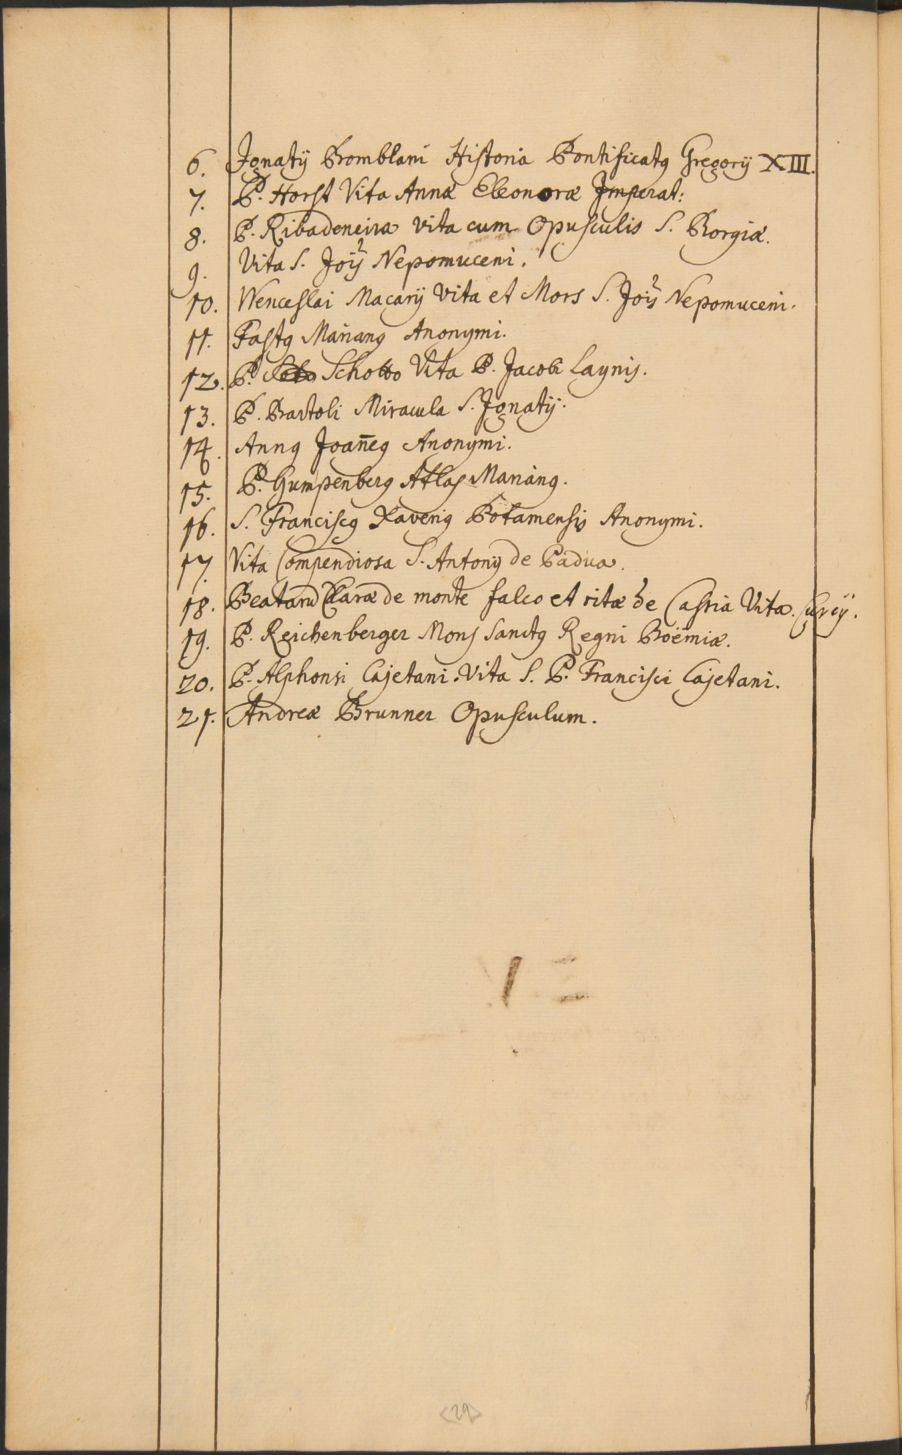 6. Ignatÿ Bomblani Historia Pontificatq Gregorÿ XIII.
7. P. Horst Vita Annæ Eleonoræ Imperat:
8. P. Ribadeneira vita cum Opusculis S. Borgiæ.
9. Vita S. Joïs Nepomuceni.
10. Wenceslai Macarÿ Vita et Mors S. Joïs Nepomuceni.
11. Fastq Marianq Anonymi.
12. P. Schotto Vita P. Jacobi Laynis.
13. P. Bartoli Miracula S. Ignatÿ.
14. Annq Joan̄eq Anonymi.
15. P. Gumpenberg Atlas Marianq.
16. S. Franciscq Xaveriq Potamensis Anonymi.
17. Vita Compendiosa S. Antonÿ de Padua.
18. Beatarū Claræ de monte falco et ritæ de Cassia Vita. Curcÿ.
19. P. Reichenberger Mons Sanctq Regni Boëmiæ.
20. P. Alphonsi Cajetani. Vita S. P. Francisci Cajetani.
21. Andreæ Brunner Opusculum.
<29>